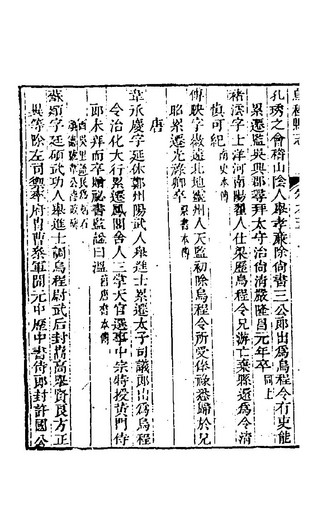 烏程縣志
孔琇之會稽山陰人舉孝廉除尚書三公郎出爲烏程令有吏能
累遷監吳興郡尋拜太守治尚清嚴隆昌元年卒同上
褚澐字士洋河南陽翟人仕梁歷烏程令兄游亡棄縣還爲令清
慎可紀南史本傳
傅映字徽遠北地靈州人天監初除烏程令所受俸祿悉歸於兄
昭累遷光祿卿卒梁書本傳
唐
韋承慶字延休鄭州陽武人舉進士累遷太子司議郎出爲烏程
令治化大行累遷鳳閣舍人三掌天官選事中宗特授黃門侍
郎未拜而卒贈祕書監諡曰溫舊唐書本傳
蘇頲字廷碩武功人舉進士調烏程尉武后封嵩高舉賢良方正
異等除左司禦率府胄曹參軍開元中歷中書侍郎封許國公